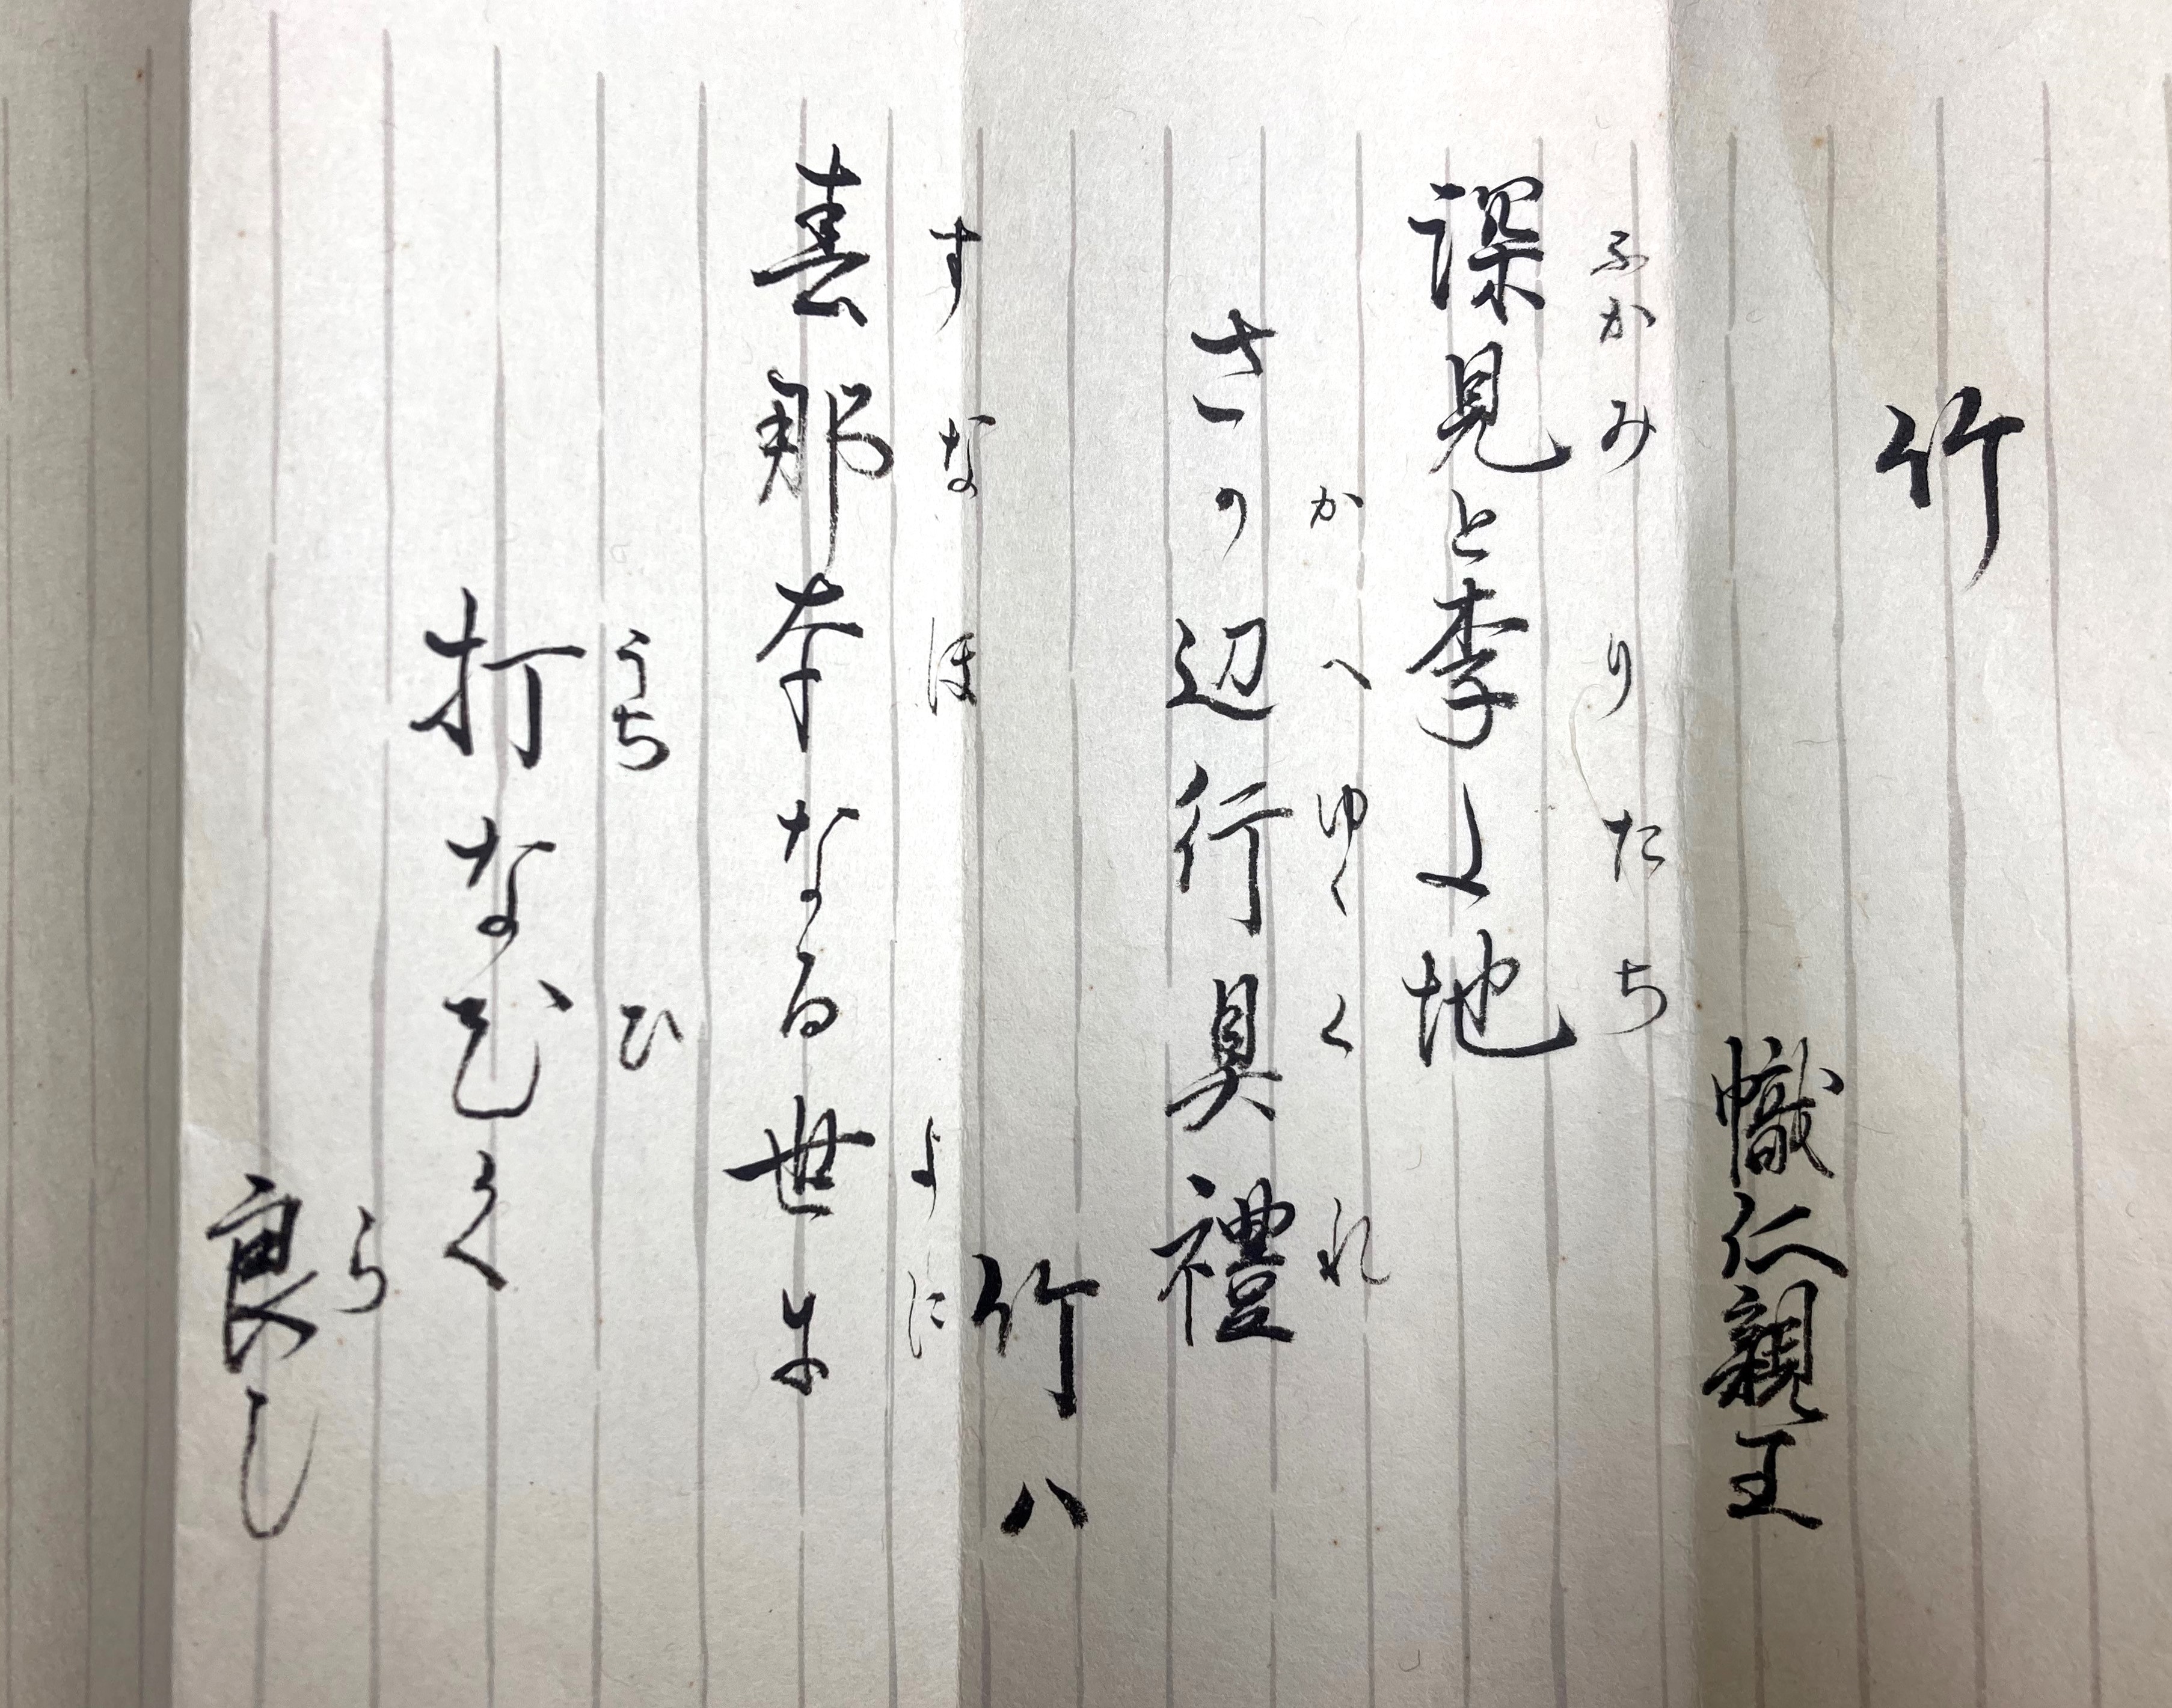 竹
幟仁親王
ふかみりたち
深見と李た地
かへゆくくれ
さ可辺行具禮
竹八
すなほよに
壽那本なる世尓
うちひ
打なびく
ら
良し